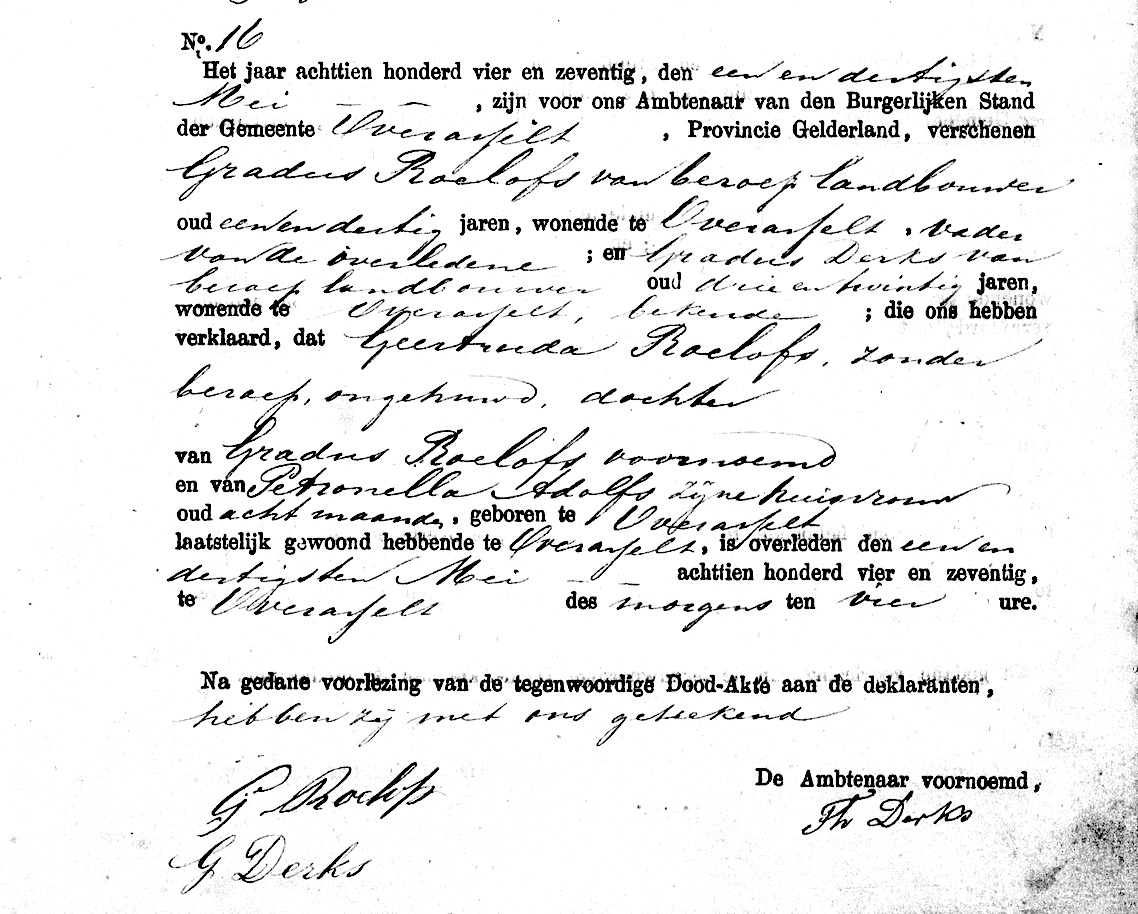 No. 16
Het jaar achttien honderd vier en zeventig, den een en dertigsten
Mei — — , zijn voor ons Ambtenaar van den Burgerlijken Stand
der Gemeente Overasselt , Provincie Gelderland, verschenen
Gradus Roelofs van beroep landbouwer
oud een en dertig jaren, wonende te Overasselt, vader
van de overledene ; en Gradus Derks van
beroep landbouwer oud drie en twintig jaren,
wonende te Overasselt, bekende ; die ons hebben
verklaard, dat Geertruda Roelofs, zonder
beroep, ongehuwd, dochter
van Gradus Roelofs voornoemd
en van Petronella Adolfs zijne huisvrouw
oud acht maanden, geboren te Overasselt
laatstelijk gewoond hebbende te Overasselt, is overleden den een en
dertigsten Mei — — achttien honderd vier en zeventig,
te Overasselt des morgens ten vier ure.
Na gedane voorlezing van de tegenwoordige Dood-Akte aan de deklaranten,
hebben zij met ons geteekend
De Ambtenaar voornoemd,
G Roelofs
Th Derks
G Derks